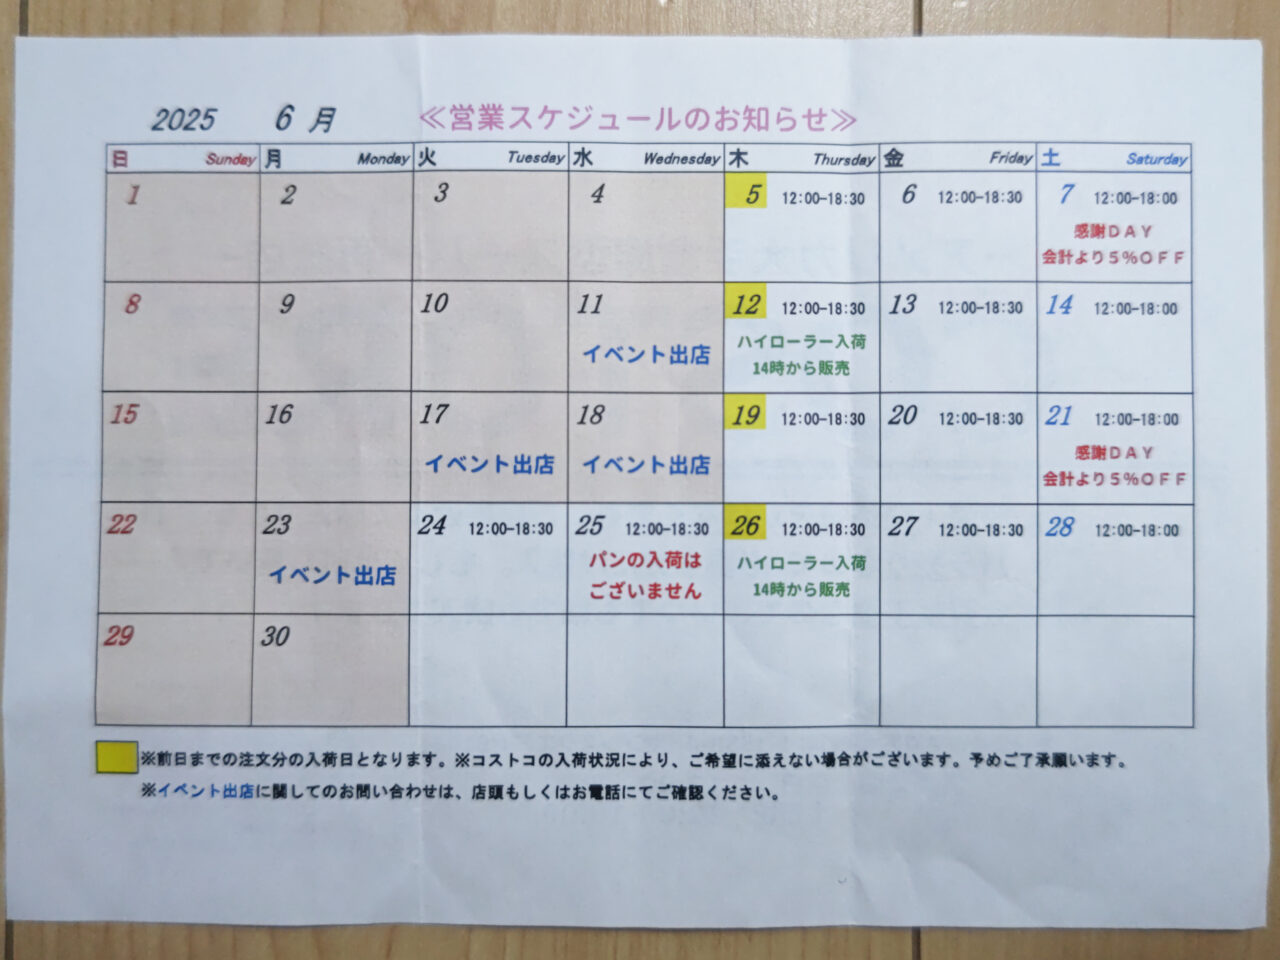 2025 6月 ≪営業スケジュールのお知らせ≫
日 Sunday 月 Monday 火 Tuesday 水 Wednesday 木 Thursday 金 Friday 土 Saturday
1 2 3 4 5 12:00-18:30 6 12:00-18:30 7 12:00-18:00
感謝DAY
会計より5%OFF
8 9 10 11 12 12:00-18:30 13 12:00-18:30 14 12:00-18:00
イベント出店 ハイローラー入荷
14時から販売
15 16 17 18 19 12:00-18:30 20 12:00-18:30 21 12:00-18:00
イベント出店 イベント出店 感謝DAY
会計より5%OFF
22 23 24 12:00-18:30 25 12:00-18:30 26 12:00-18:30 27 12:00-18:30 28 12:00-18:00
イベント出店 パンの入荷は ハイローラー入荷
ございません 14時から販売
29 30
※前日までの注文分の入荷日となります。※コストコの入荷状況により、ご希望に添えない場合がございます。予めご了承願います。
※イベント出店に関してのお問い合わせは、店頭もしくはお電話にてご確認ください。